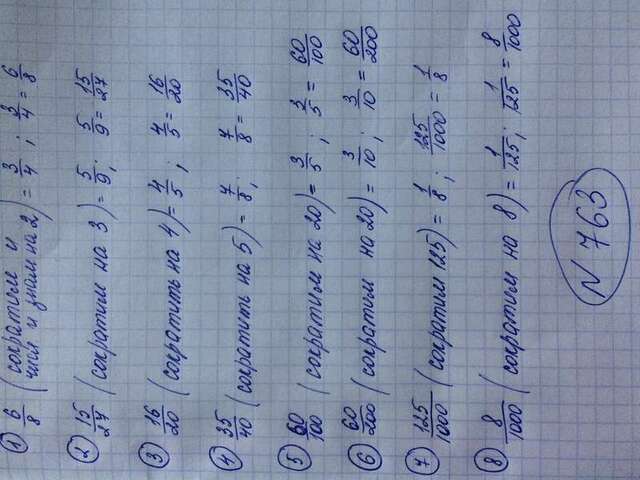 1) 6/8 (сократим и числ и знам на 2) = 3/4 ; 3/4 = 6/8
2) 15/27 (сократим на 3) = 5/9; 5/9 = 15/27
3) 16/20 (сократить на 4) = 4/5 ; 4/5 = 16/20
4) 35/40 (сократить на 5) = 7/8; 7/8 = 35/40
5) 60/100 (сократим на 20) = 3/5 ; 3/5 = 60/100
6) 60/200 (сократим на 20) = 3/10 ; 3/10 = 60/200
7) 125/1000 (сократим 125) = 1/8 ; 125/1000 = 1/8
8) 8/1000 (сократим на 8) = 1/125; 1/125 = 8/1000
N 763